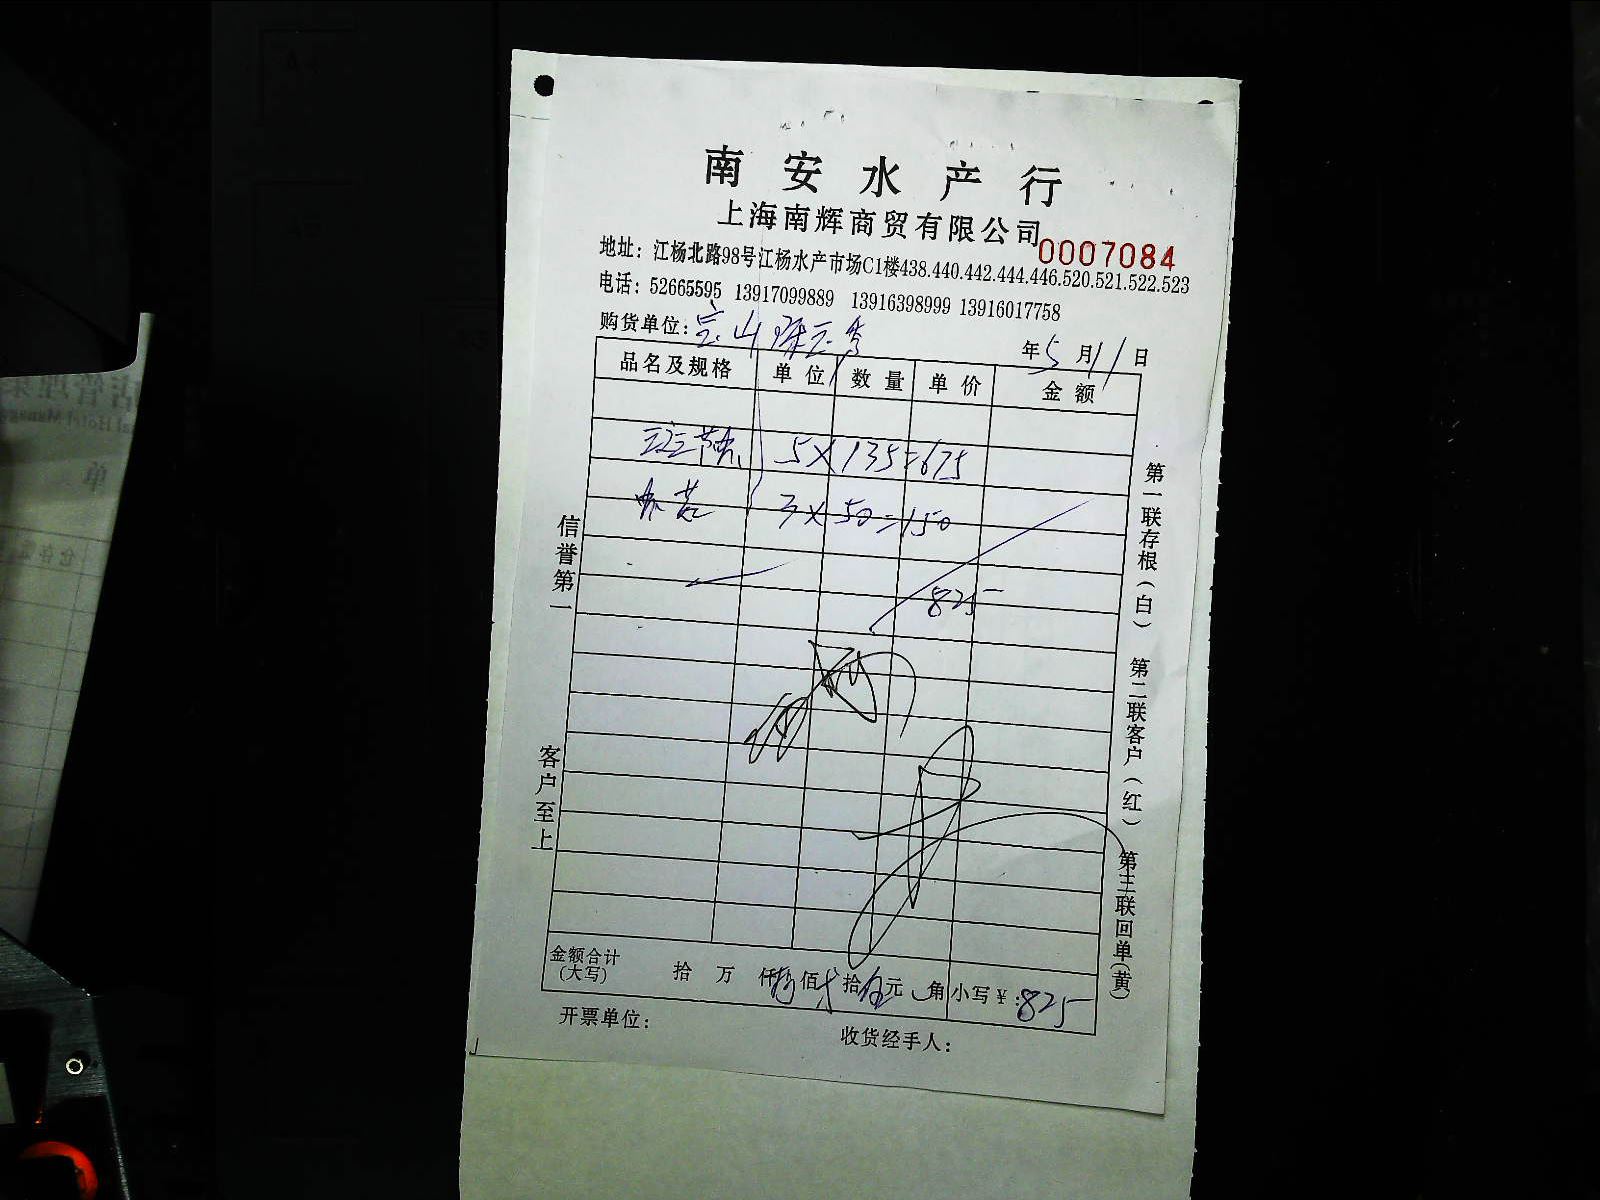 南安水产行
上海南辉商贸有限公司
0007084
地址：江杨北路98号江杨水产市场C1楼438.440.442.444.446.520.521.522.523
电话：52665595 13917099889 13916398999 13916017758
购货单位：宝山
年5月11日
品名及规格 单位 数量 单价 金额
5×135=675
3×50=150
825
金额合计（大写） 拾 万 仟捌佰贰拾伍元 角 小写￥：825
开票单位：
收货经手人：
信誉第一
客户至上
第一联存根（白）
第二联客户（红）
第三联回单（黄）